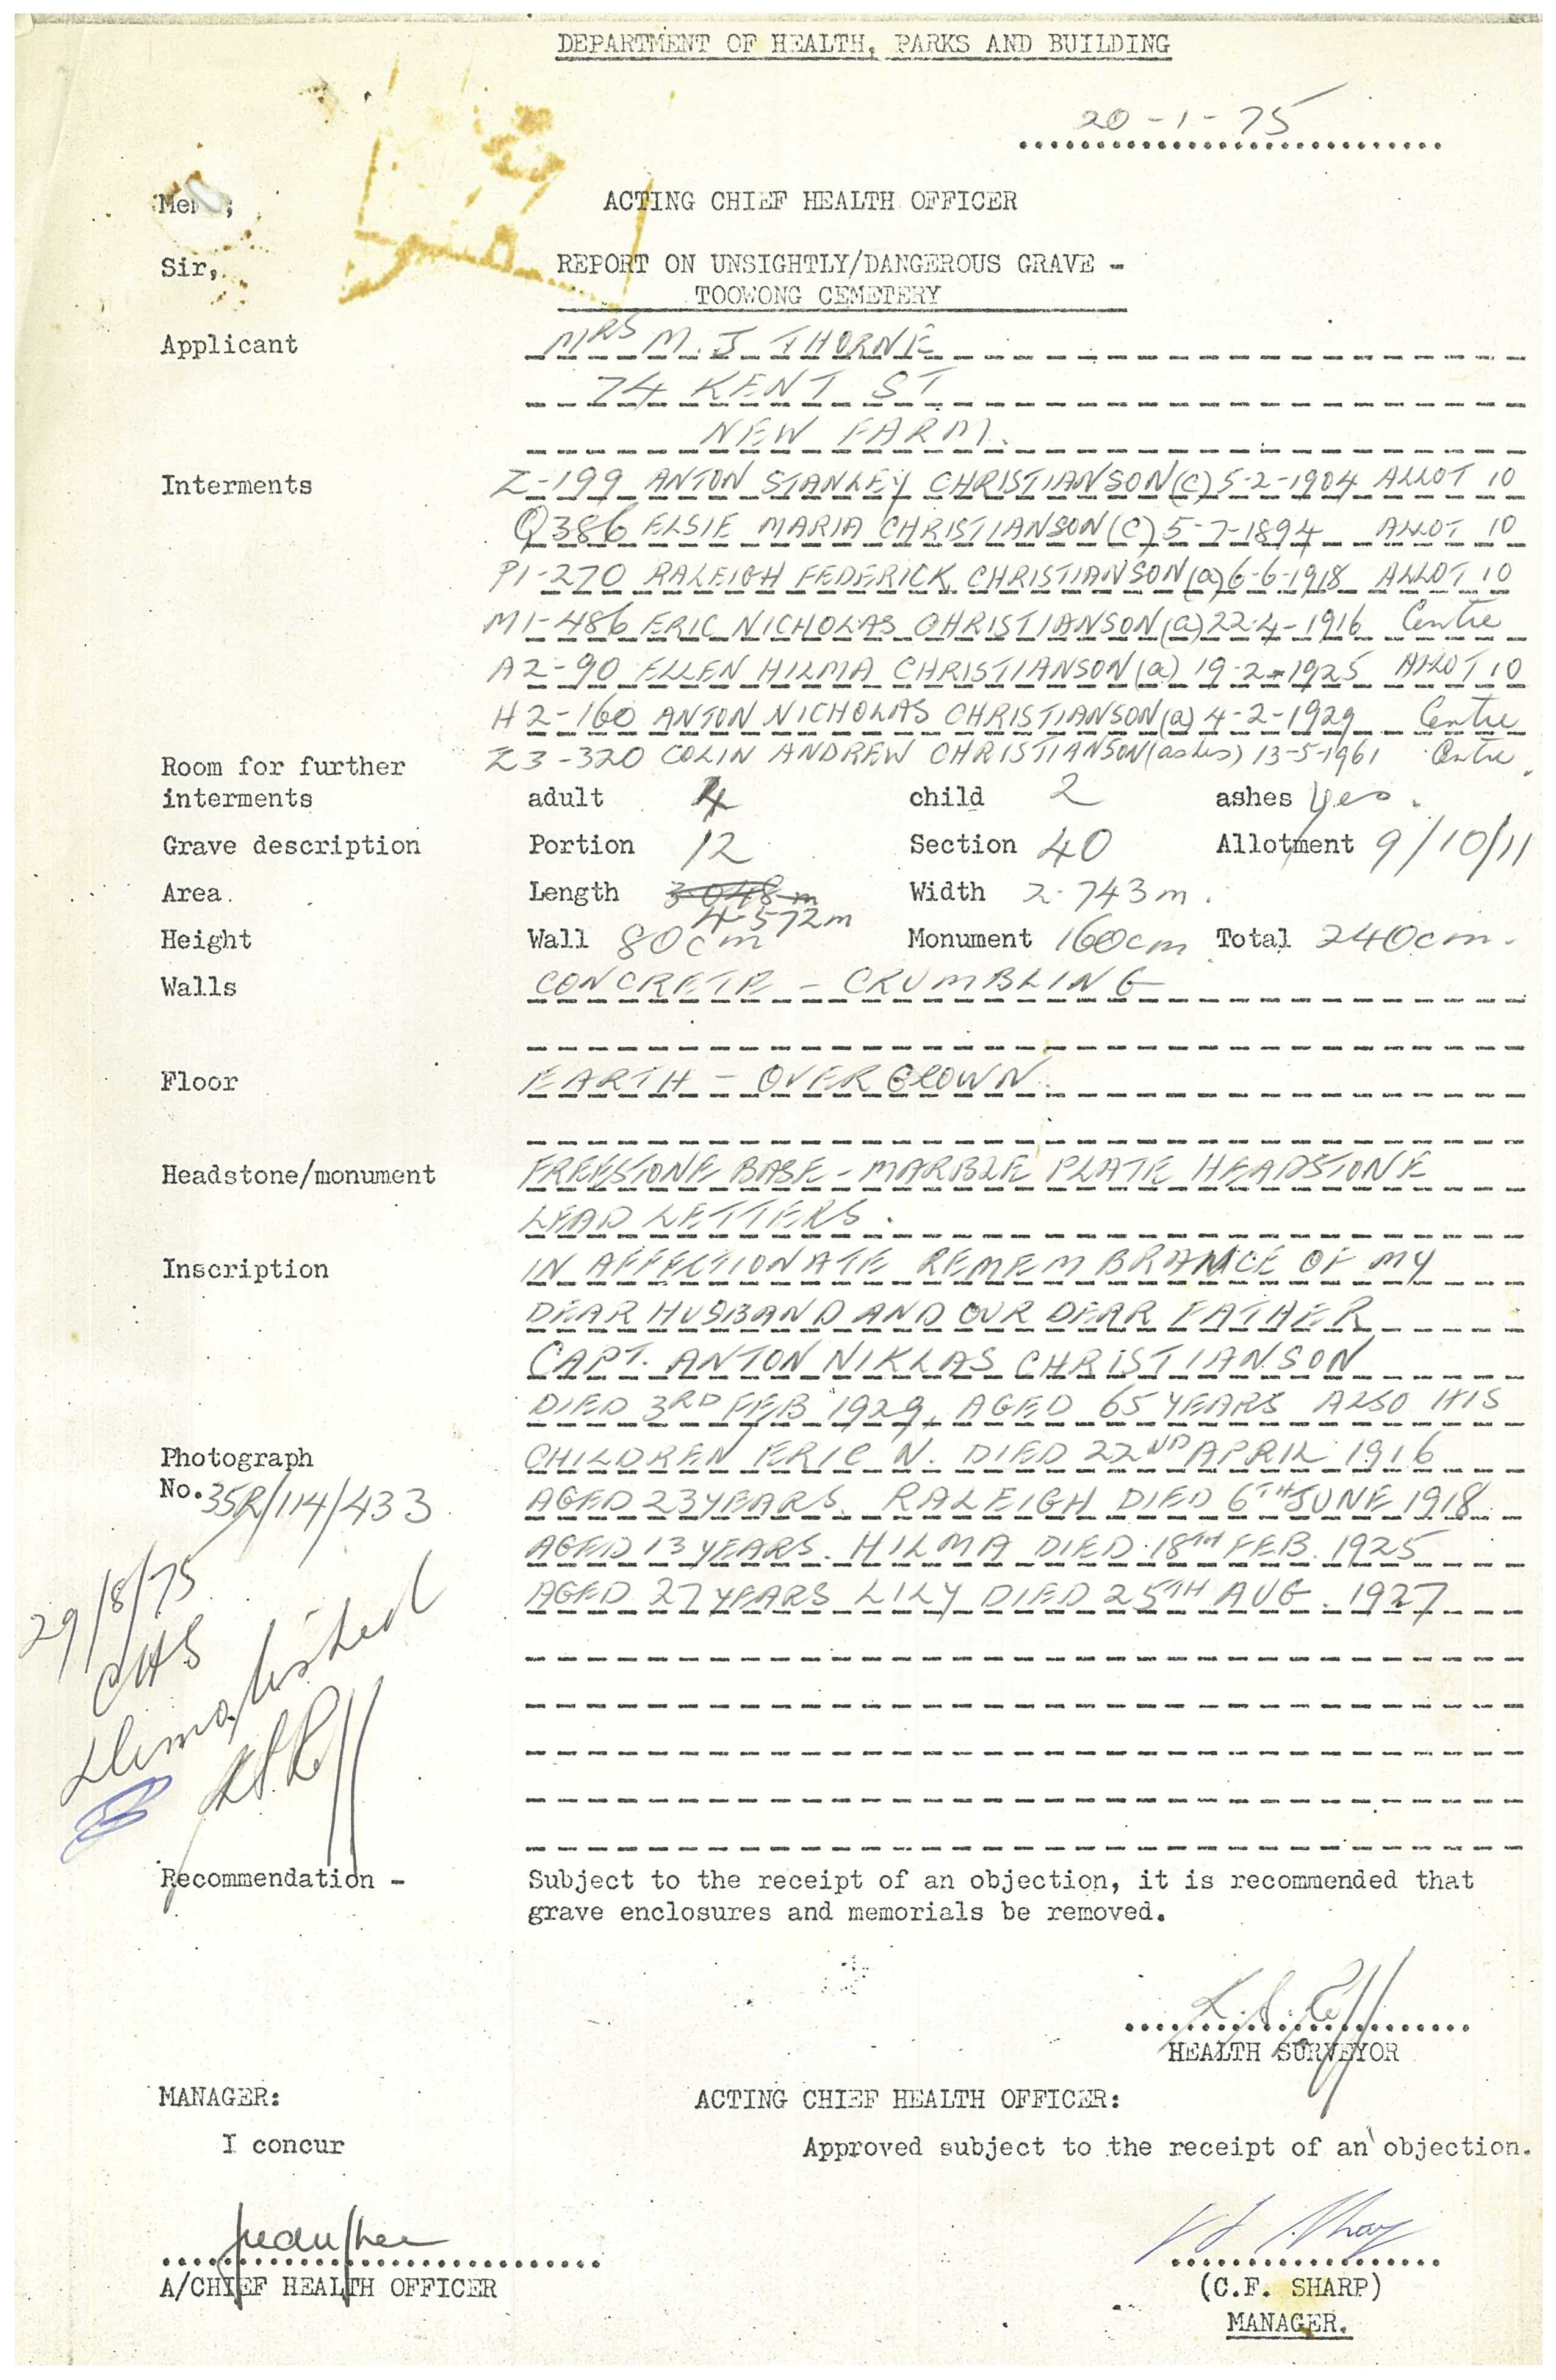 DEPARTMENT OF HEALTH, PARKS AND BUILDING
20-1-75
ACTING CHIEF HEALTH OFFICER
Sir,
REPORT ON UNSIGHTLY/DANGEROUS GRAVE -
TOOWONG CEMETERY
Applicant MRS M. J THORNE
74 KENT ST
NEW FARM.
Interments Z-199 ANTON STANLEY CHRISTIANSON (C) 5-2-1904 ALLOT 10
Q386 ELSIE MARIA CHRISTIANSON (C) 5-7-1894 ALLOT 10
P1-270 RALEIGH FEDERICK CHRISTIANSON (a) 6-6-1918 ALLOT 10
M1-486 ERIC NICHOLAS CHRISTIANSON (a) 22-4-1916 Centre
A2-90 ELLEN HILMA CHRISTIANSON (a) 19-2-1925 ALLOT 10
H2-160 ANTON NICHOLAS CHRISTIANSON (a) 4-2-1929 Centre
Z3-320 COLIN ANDREW CHRISTIANSON (ashes) 13-5-1961 Centre.
Room for further
interments adult 4 child 2 ashes yes.
Grave description Portion 12 Section 40 Allotment 9/10/11
Area. Length 3 048 m Width 2.743m.
4.572m
Height Wall 80cm Monument 160cm Total 240cm.
Walls CONCRETE - CRUMBLING
Floor EARTH - OVERGROWN.
Headstone/monument FREESTONE BASE - MARBLE PLATE HEADSTONE
LEAD LETTERS.
Inscription IN AFFECTIONATE REMEMBRANCE OF MY
DEAR HUSBAND AND OUR DEAR FATHER
CAPT. ANTON NIKLAS CHRISTIANSON
DIED 3RD FEB 1929, AGED 65 YEARS ALSO HIS
Photograph CHILDREN ERIC N. DIED 22ND APRIL 1916
No. 35R/114/433 AGED 23 YEARS. RALEIGH DIED 6TH JUNE 1918
AGED 13 YEARS. HILMA DIED 18TH FEB. 1925
AGED 27 YEARS LILY DIED 25TH AUG. 1927
29/8/75
CHS
Demolished
Recommendation - Subject to the receipt of an objection, it is recommended that
grave enclosures and memorials be removed.
HEALTH SURVEYOR
MANAGER: ACTING CHIEF HEALTH OFFICER:
I concur Approved subject to the receipt of an objection.
A/CHIEF HEALTH OFFICER (C.F. SHARP)
MANAGER.